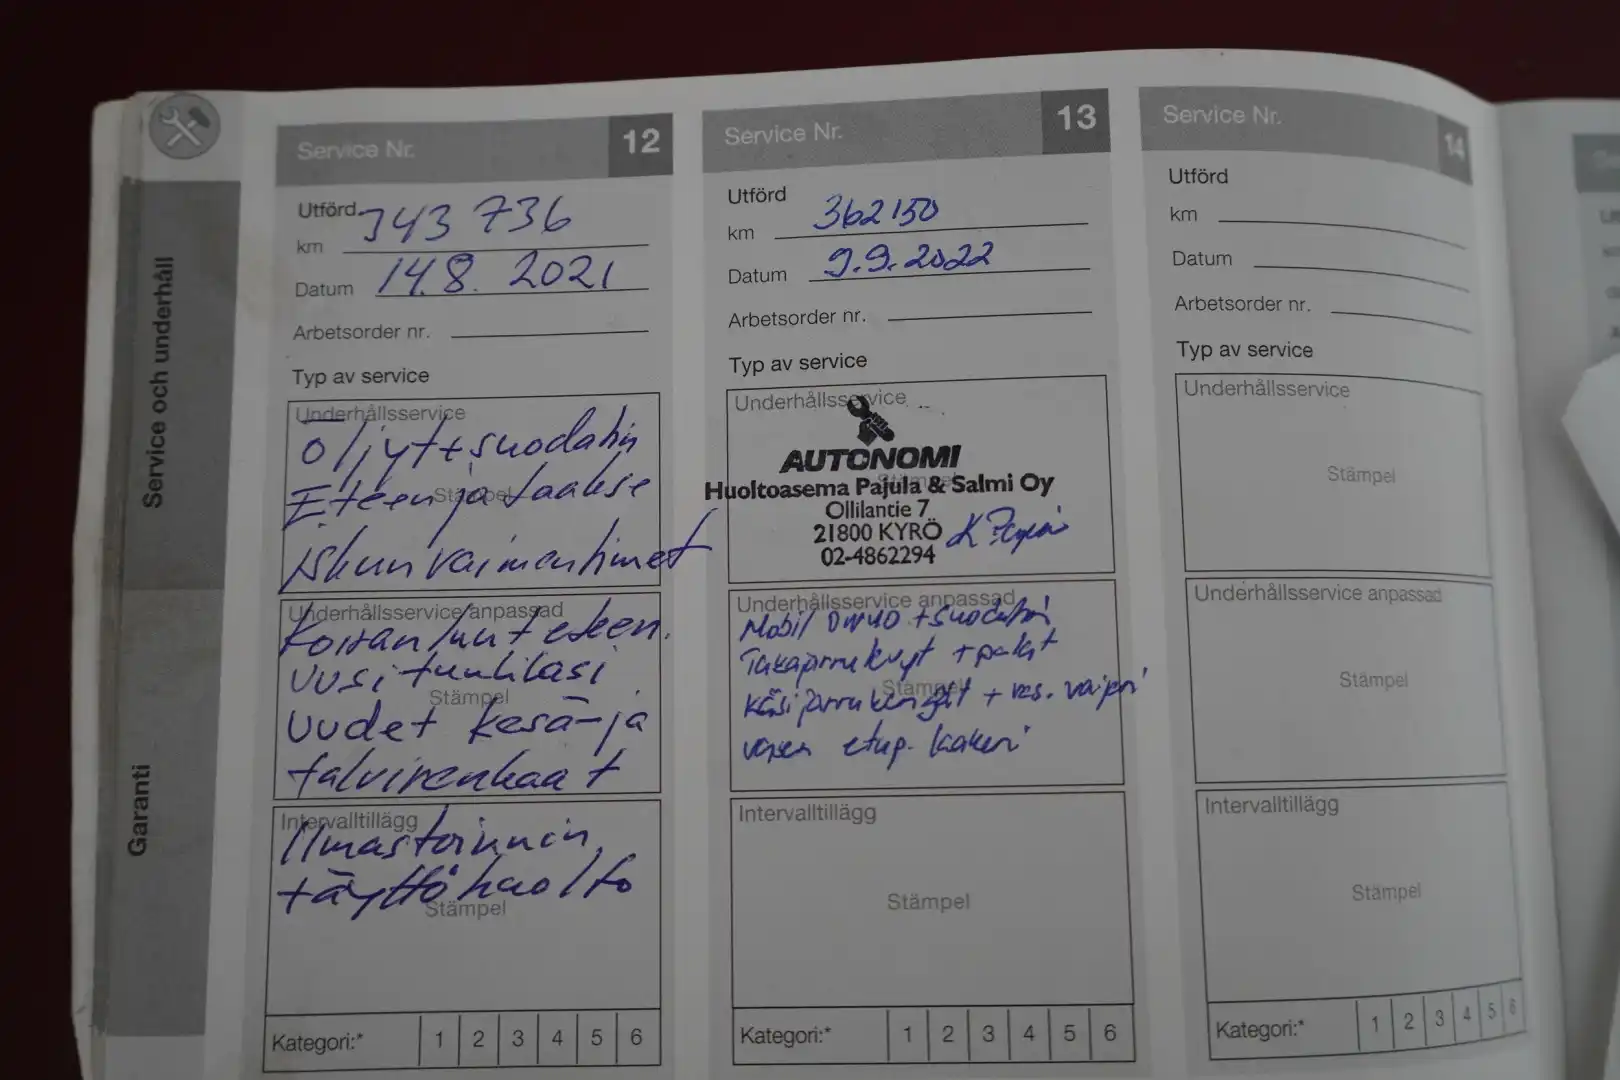 Service och underhåll
Garanti
Service Nr. 12
Utförd
km 343 736
Datum 14.8. 2021
Arbetsorder nr.
Typ av service
Underhållsservice
Stämpel
Öljyt + suodatin
Eteen ja taakse
iskunvaimentimet
Underhållsservice anpassad
Stämpel
Koiranluut eteen.
Uusi tuulilasi
Uudet kesä- ja
talvirenkaat
Intervalltillägg
Stämpel
Ilmastoinnin
täyttöhuolto
Kategori:* 1 2 3 4 5 6
Service Nr. 13
Utförd
km 362150
Datum 9.9.2022
Arbetsorder nr.
Typ av service
Underhållsservice
AUTONOMI
Huoltoasema Pajula & Salmi Oy
Ollilantie 7
21800 KYRÖ
02-4862294
Underhållsservice anpassad
Stämpel
Mobil 0W40 + suodatin
Takajarrulevyt + palat
Käsijarrukengät + vas. vaijeri
vasen etup. laakeri
Intervalltillägg
Stämpel
Kategori:* 1 2 3 4 5 6
Service Nr. 14
Utförd
km
Datum
Arbetsorder nr.
Typ av service
Underhållsservice
Stämpel
Underhållsservice anpassad
Stämpel
Intervalltillägg
Stämpel
Kategori:* 1 2 3 4 5 6